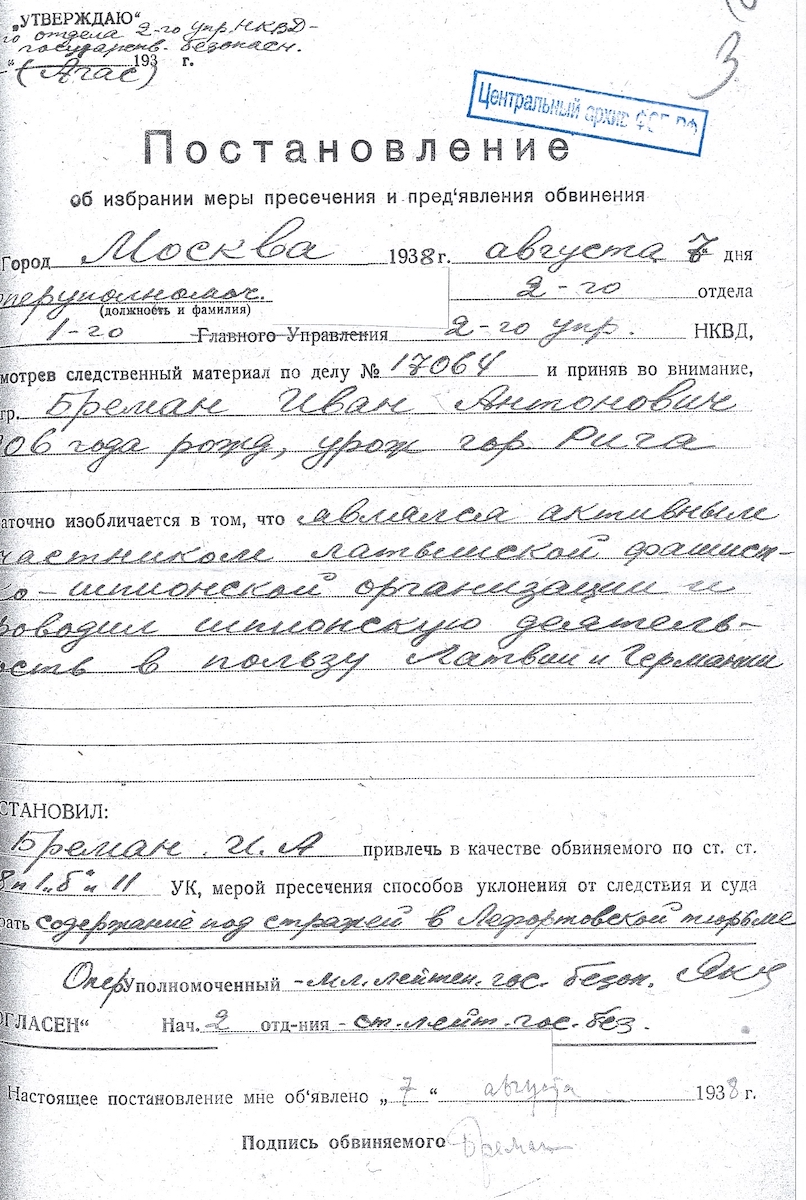 „УТВЕРЖДАЮ“
го отдела 2-го упр. НКВД-
государств. безопасн.
(Агас)
193 г.
3
Центральный архив ФСБ РФ
Постановление
об избрании меры пресечения и пред‘явления обвинения
Город Москва 1938 г. августа 7 дня
перуполномоч. 2-го отдела
(должность и фамилия)
1-го Главного Управления 2-го упр. НКВД,
мотрев следственный материал по делу № 17064 и приняв во внимание,
гр. Бреман Иван Антонович
06 года рожд, урож гор. Рига
аточно изобличается в том, что являлся активным
частником латвийской фашист-
ко-шпионской организации и
роводил шпионскую деятель-
ость в пользу Латвии и Германии
СТАНОВИЛ:
Бреман И.А привлечь в качестве обвиняемого по ст. ст.
8 п 1„б“ и 11 УК, мерой пресечения способов уклонения от следствия и суда
рать содержание под стражей в Лефортовской тюрьме
Оперуполномоченный - мл. лейтен. гос. безоп.
ОГЛАСЕН“ Нач. 2 отд-ния - ст. лейт. гос. без.
Настоящее постановление мне об‘явлено „7“ августа 1938 г.
Подпись обвиняемого Бреман